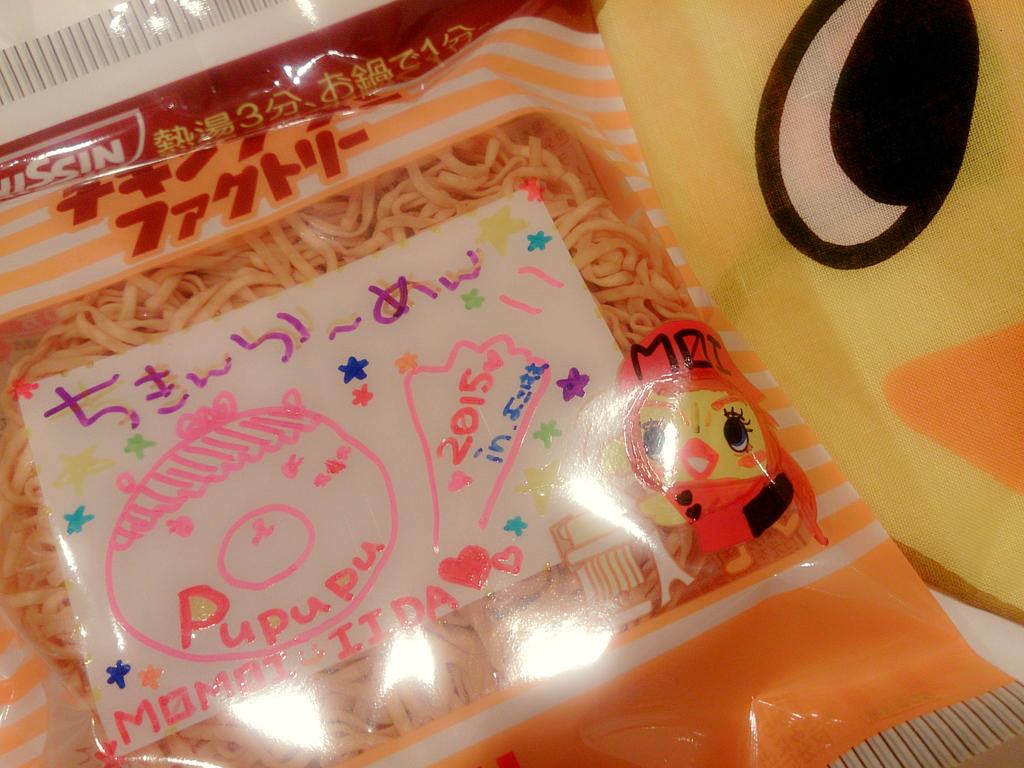 NISSIN
熱湯3分、お鍋で1分
チキンラーメン
ファクトリー
ちきんら〜めん
2015
in.
Pupupu
MOMOI IIDA
MOI